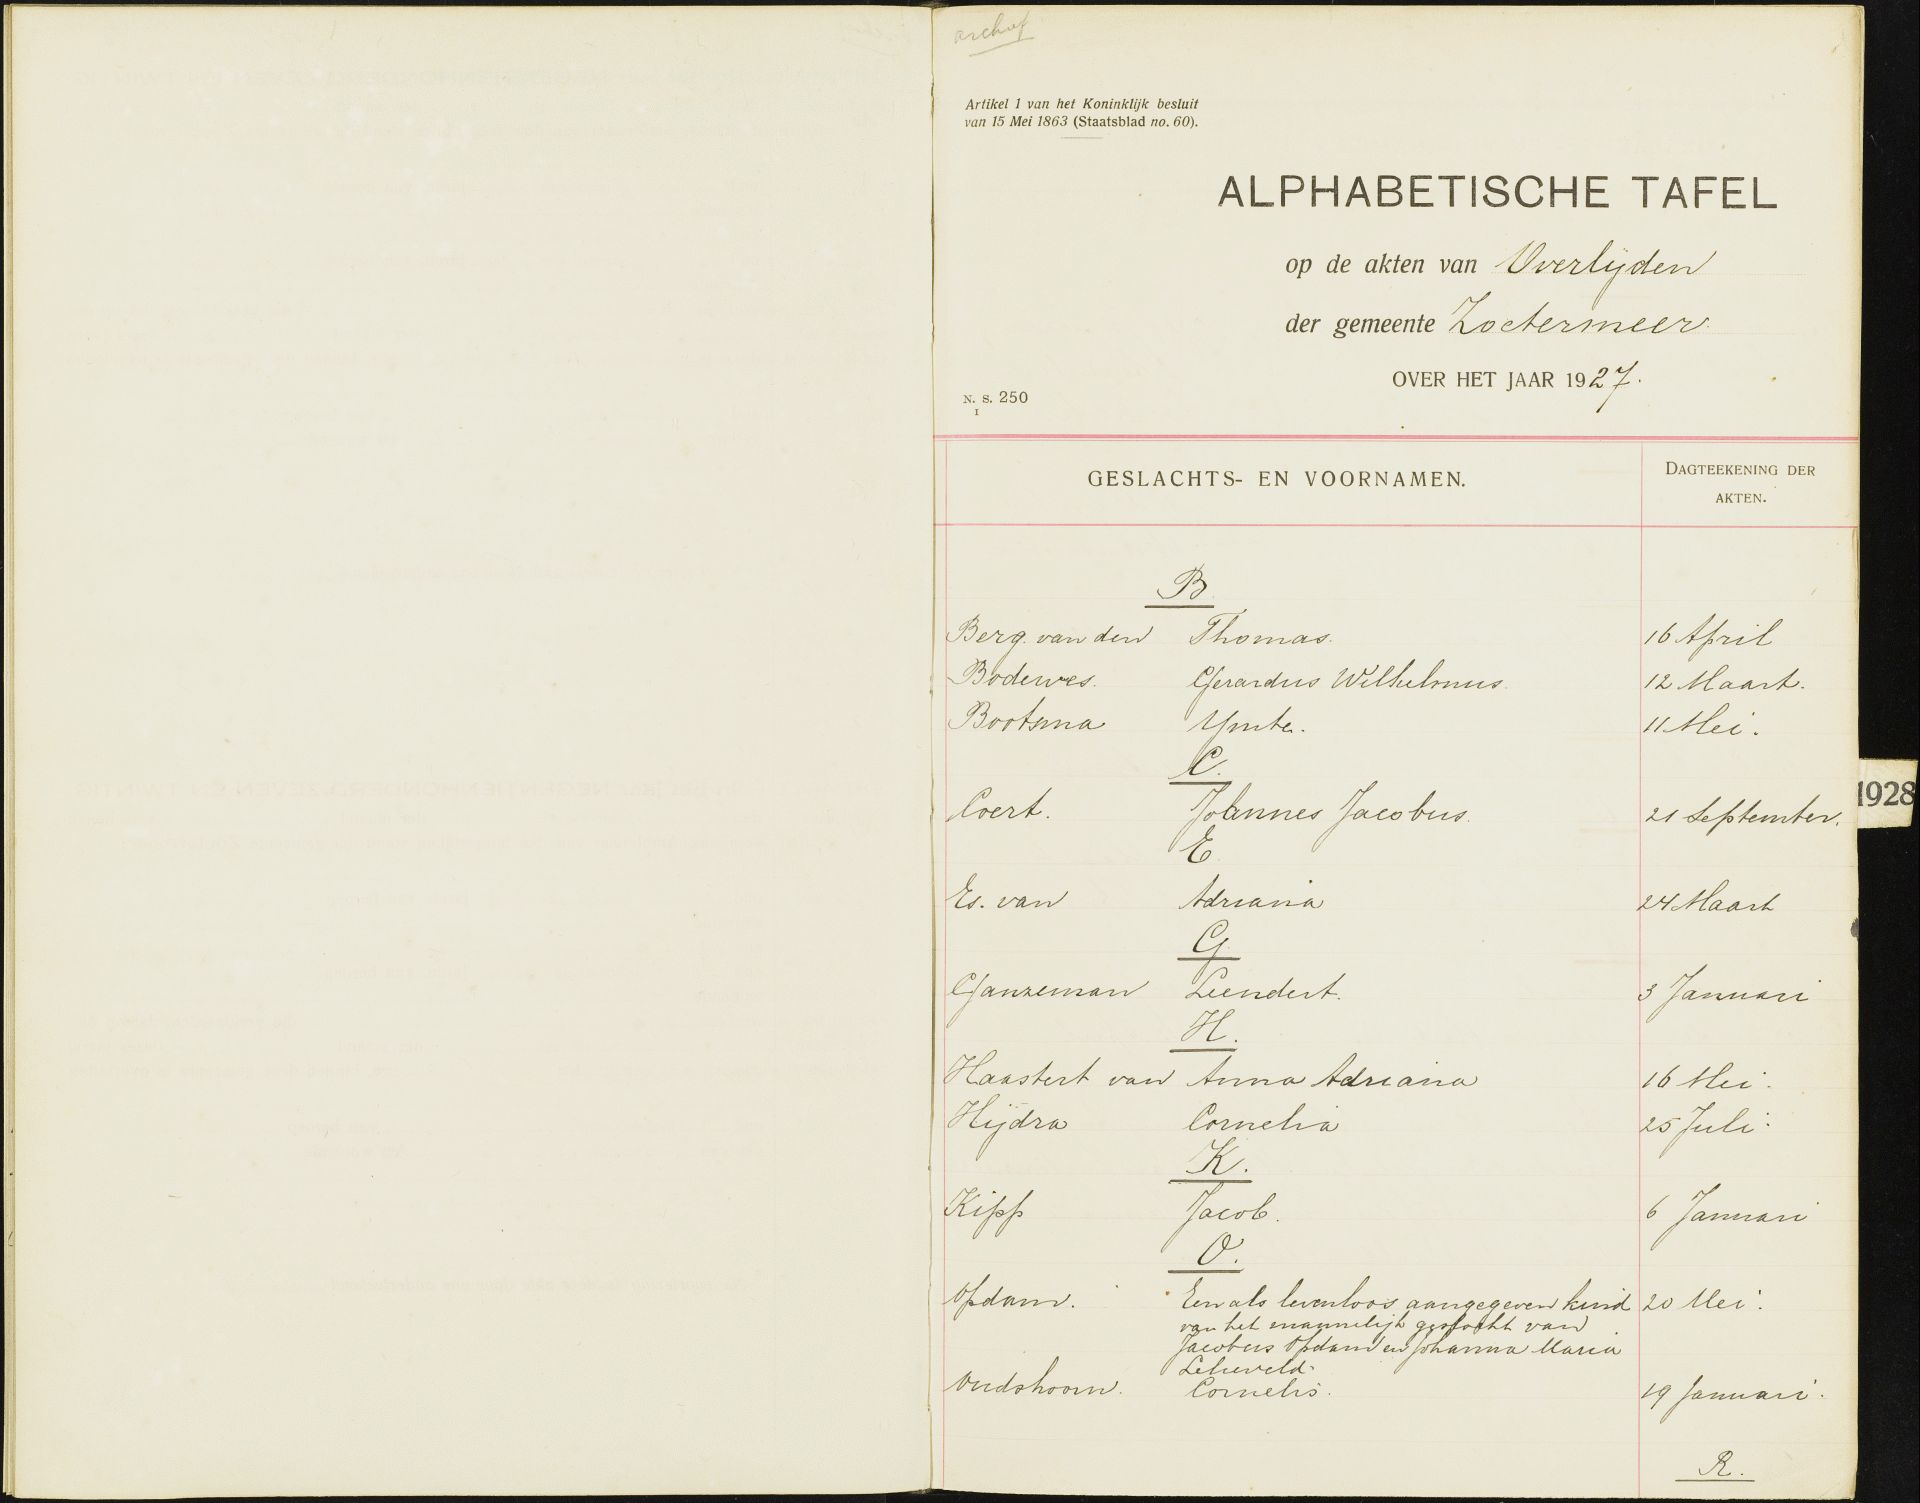 archief
Artikel 1 van het Koninklijk besluit
van 15 Mei 1863 (Staatsblad no. 60).
ALPHABETISCHE TAFEL
op de akten van Overlijden
der gemeente Zoetermeer
OVER HET JAAR 1927.
N. S. 250
I
GESLACHTS- EN VOORNAMEN. DAGTEEKENING DER
AKTEN.
B.
Berg. van den Thomas. 16 April
Bodewes. Gerardus Wilhelmus. 12 Maart.
Bootsma Ymte. 11 Mei.
C.
Coert. Johannes Jacobus. 21 September.
E.
Es. van Adriana 24 Maart
G.
Ganzeman Leendert. 3 Januari
H.
Haastert van Anna Adriana 16 Mei.
Hijdra Cornelia 25 Juli.
K.
Kipp Jacob. 6 Januari
O.
Opdam. Een als levenloos aangegeven kind 20 Mei.
van het mannelijk geslacht van
Jacobus Opdam en Johanna Maria
Lelieveld.
Oudshoorn. Cornelis. 19 Januari.
R.
1928